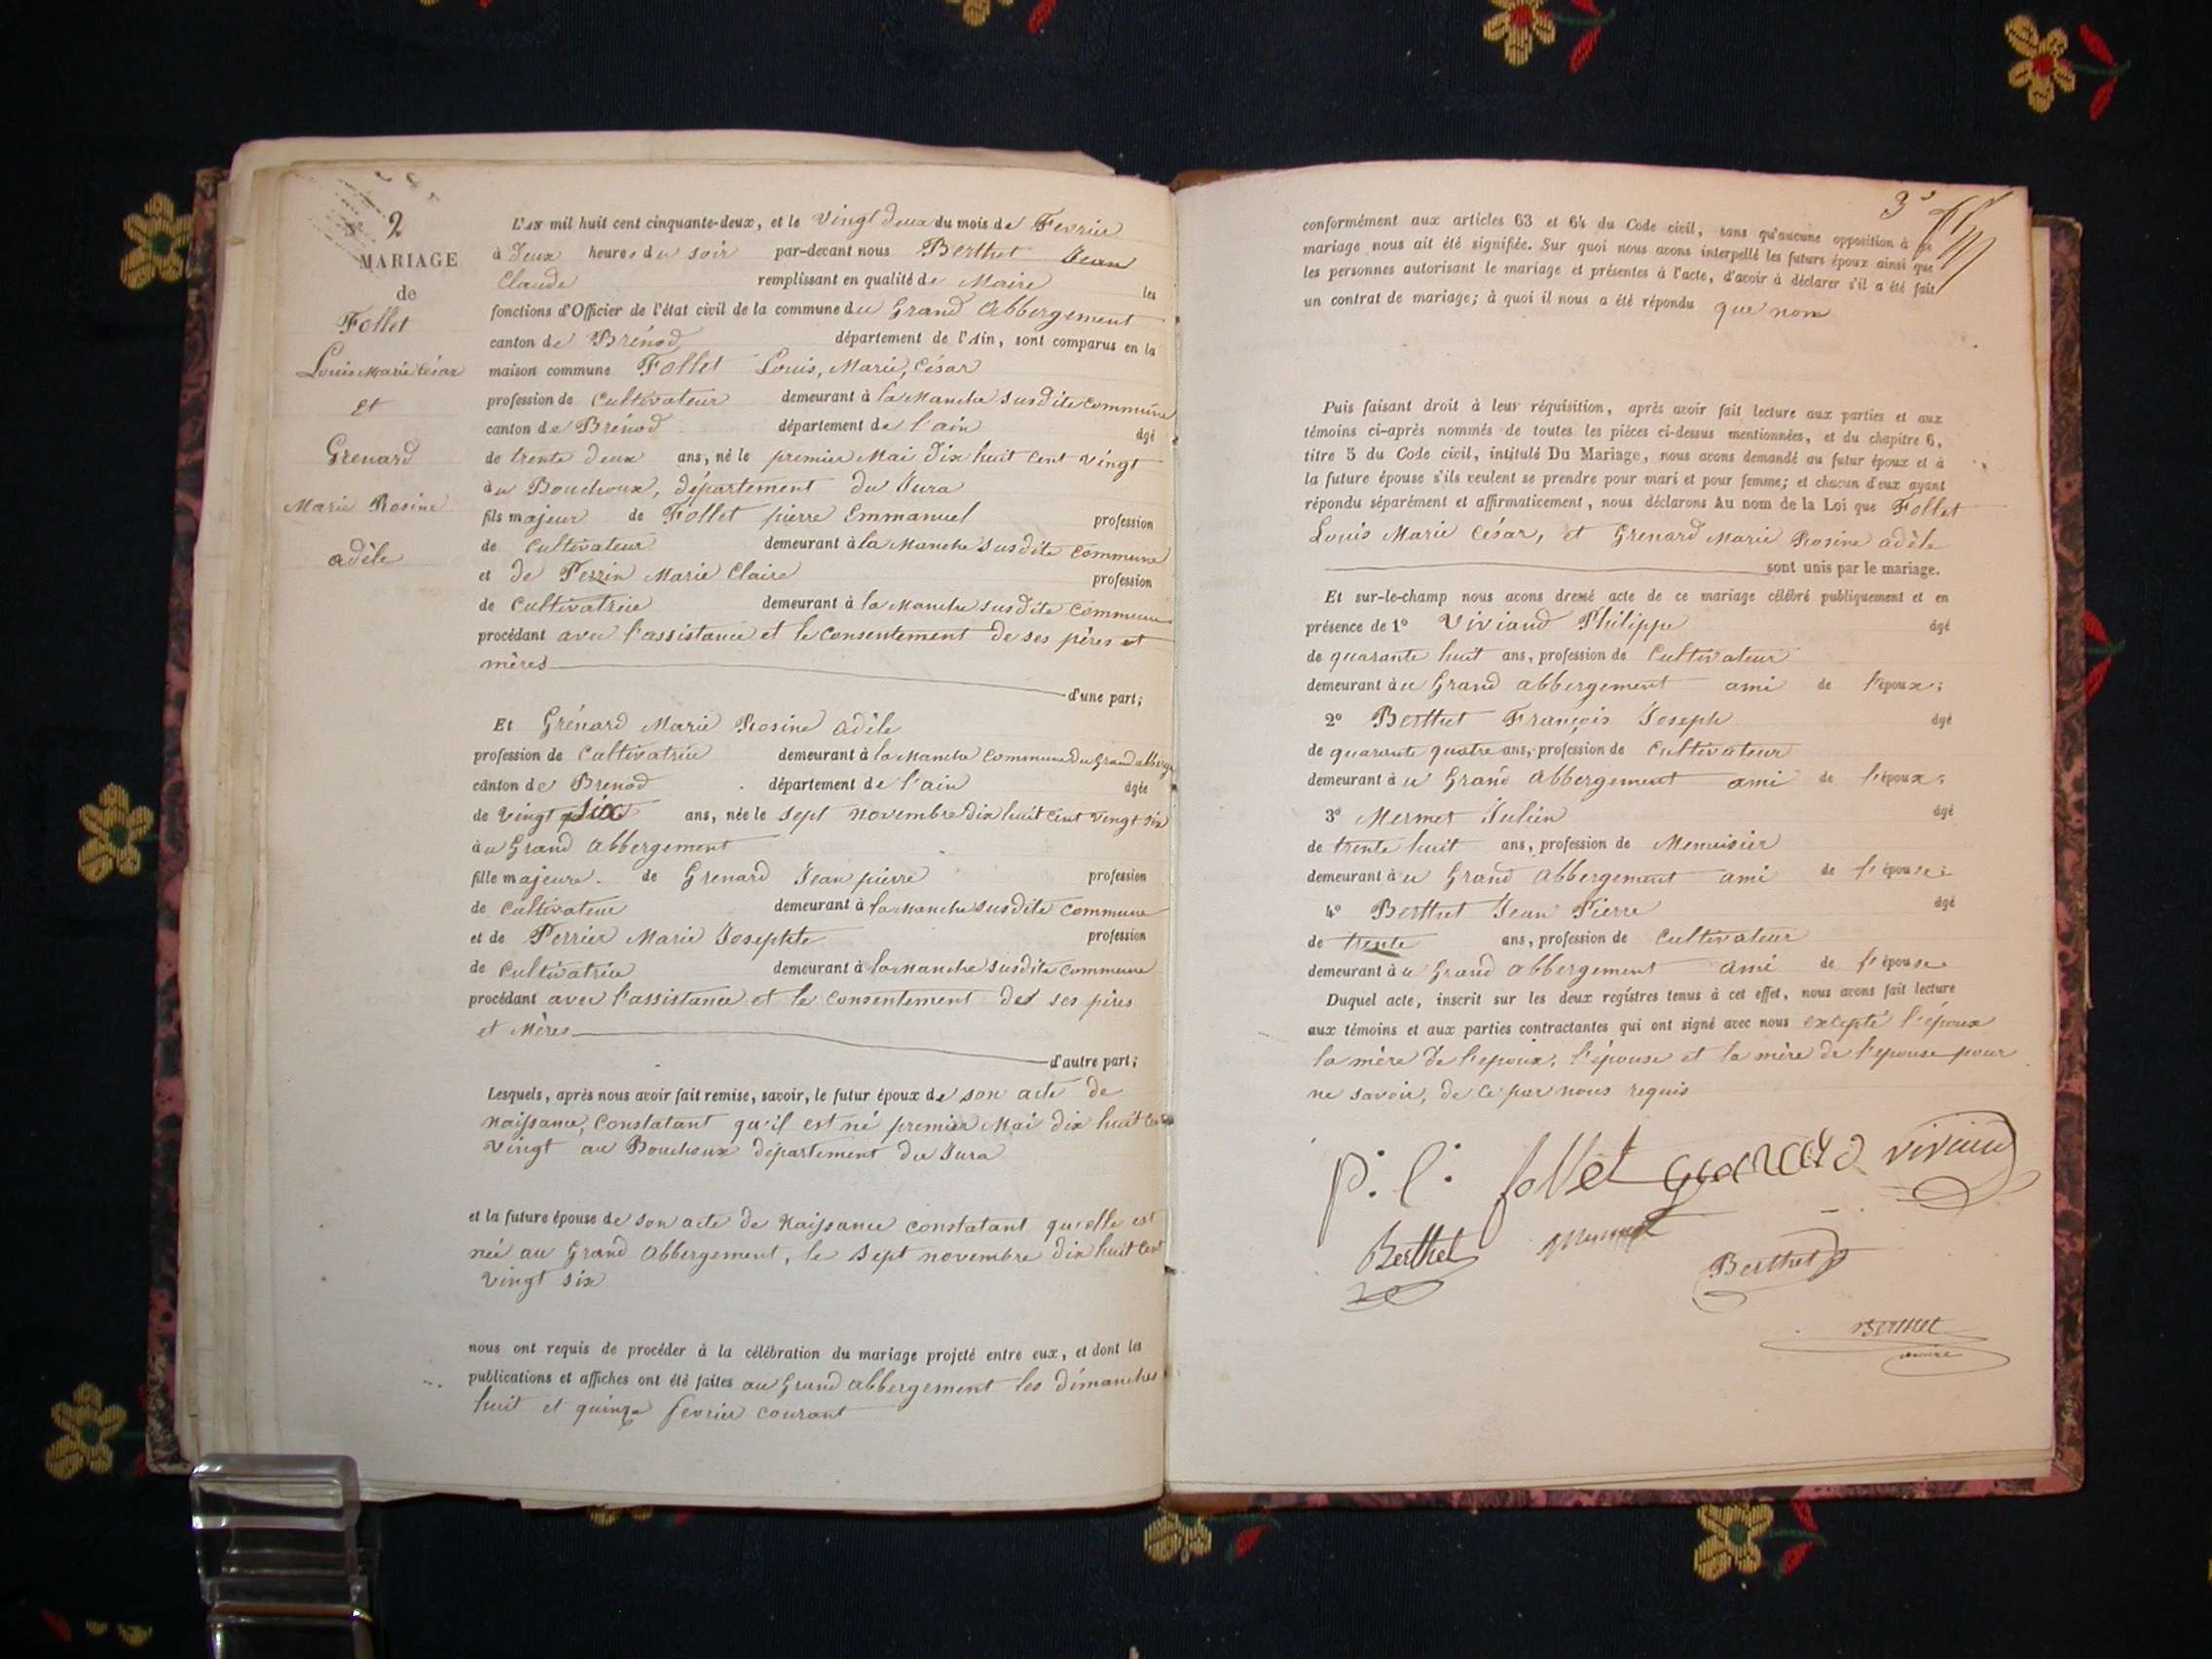 N° 2
MARIAGE
de
Follet
Louis Marie César
et
Grenard
Marie Rosine
adèle
L'AN mil huit cent cinquante-deux, et le Vingt deux du mois de Fevrier
à deux heures du soir par-devant nous Berthet Jean
Claude remplissant en qualité de Maire les
fonctions d'Officier de l'état civil de la commune du Grand Abbergement
canton de Brénod département de l'Ain, sont comparus en la
maison commune Follet Louis, Marie, César
profession de Cultivateur demeurant à la Manche susdite commune
canton de Brénod département de l'ain âgé
de trente deux ans, né le premier Mai dix huit cent vingt
au Bouchoux, département du Jura
fils majeur de Follet pierre Emmanuel profession
de Cultivateur demeurant à la Manche susdite commune
et de Perrin Marie Claire profession
de Cultivatrice demeurant à la Manche susdite commune
procédant avec l'assistance et le consentement de ses pères et
mères d'une part;
Et Grénard Marie Rosine adèle
profession de Cultivatrice demeurant à la Manche commune du Grand abberg
canton de Brenod département de l'ain âgée
de vingt six ans, née le sept novembre dix huit cent vingt six
au Grand Abbergement
fille majeure de Grenard Jean pierre profession
de Cultivateur demeurant à la Manche susdite commune
et de Perrier Marie Josephte profession
de Cultivatrice demeurant à la Manche susdite commune
procédant avec l'assistance et le consentement des ses pères
et Mères d'autre part;
Lesquels, après nous avoir fait remise, savoir, le futur époux de son acte de
Naissance, Constatant qu'il est né premier Mai dix huit cent
vingt au Bouchoux département du Jura
et la future épouse de son acte de Naissance constatant qu'elle est
née au Grand Abbergement, le sept novembre dix huit cent
vingt six
nous ont requis de procéder à la célébration du mariage projeté entre eux, et dont les
publications et affiches ont été faites au Grand abbergement les dimanches
huit et quinze fevrier courant
3
conformément aux articles 63 et 64 du Code civil, sans qu'aucune opposition à ce
mariage nous ait été signifiée. Sur quoi nous avons interpellé les futurs époux ainsi que
les personnes autorisant le mariage et présentes à l'acte, d'avoir à déclarer s'il a été fait
un contrat de mariage; à quoi il nous a été répondu que non
Puis faisant droit à leur réquisition, après avoir fait lecture aux parties et aux
témoins ci-après nommés de toutes les pièces ci-dessus mentionnées, et du chapitre 6,
titre 5 du Code civil, intitulé Du Mariage, nous avons demandé au futur époux et à
la future épouse s'ils veulent se prendre pour mari et pour femme; et chacun d'eux ayant
répondu séparément et affirmativement, nous déclarons Au nom de la Loi que Follet
Louis Marie César, et Grenard Marie Rosine adèle
sont unis par le mariage.
Et sur-le-champ nous avons dressé acte de ce mariage célébré publiquement et en
présence de 1° Viviand Philippe âgé
de quarante huit ans, profession de Cultivateur
demeurant au Grand abbergement ami de l'époux;
2° Berthet François Joseph âgé
de quarante quatre ans, profession de Cultivateur
demeurant au Grand Abbergement ami de l'époux;
3° Mermet Julien âgé
de trente huit ans, profession de Menuisier
demeurant au Grand Abbergement ami de l'épouse;
4° Berthet Jean Pierre âgé
de trente ans, profession de Cultivateur
demeurant au Grand Abbergement ami de l'épouse
Duquel acte, inscrit sur les deux registres tenus à cet effet, nous avons fait lecture
aux témoins et aux parties contractantes qui ont signé avec nous excepté l'époux
la mère de l'époux, l'épouse et la mère de l'epouse pour
ne savoir, de ce par nous requis
p. l. follet viviand
Berthet Mermet
Berthet
Berthet
maire